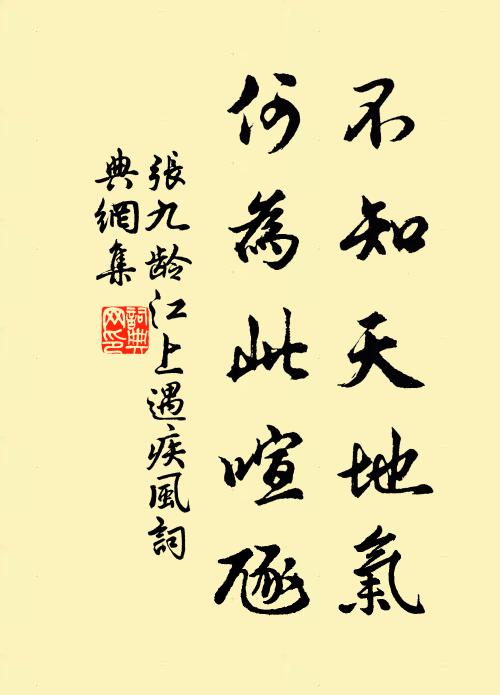 不知天地氣
何為此喧豗
張九龄江上遇疾風詞
典網集
詞典
网印